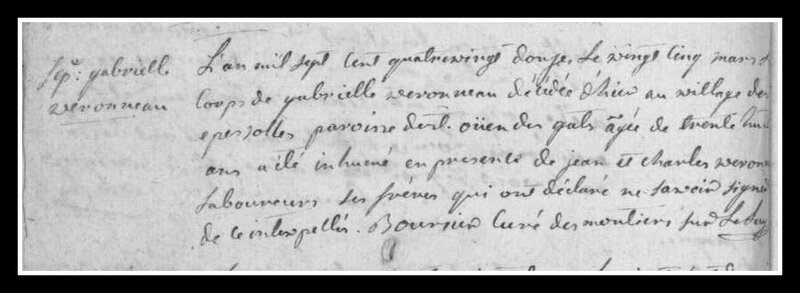 sep.re gabrielle
veronneau
L'an mil sept cent quatrevingt douze, le vingt cinq mars
corps de gabrielle veronneau décédée d'hier au village des
epessottes paroisse de st. oüen des gats âgée de trente huit
ans a été inhumé en presence de jean et charles veron
laboureurs ses fréres qui ont déclaré ne savoir signé
de ce interpellés. Boursier curé des moutiers sur le lay